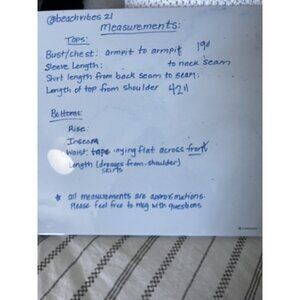 @beachvibes21
Measurements:
Tops:
Bust/chest: armpit to armpit 19"
Sleeve Length: to neck seam
Shirt length from back seam to seam:
Length of top from shoulder 42"
Bottoms:
Rise:
Inseam
Waist: tape laying flat across front
Length (dresses from shoulder)
skirts
* all measurements are approximations.
Please feel free to msg with questions